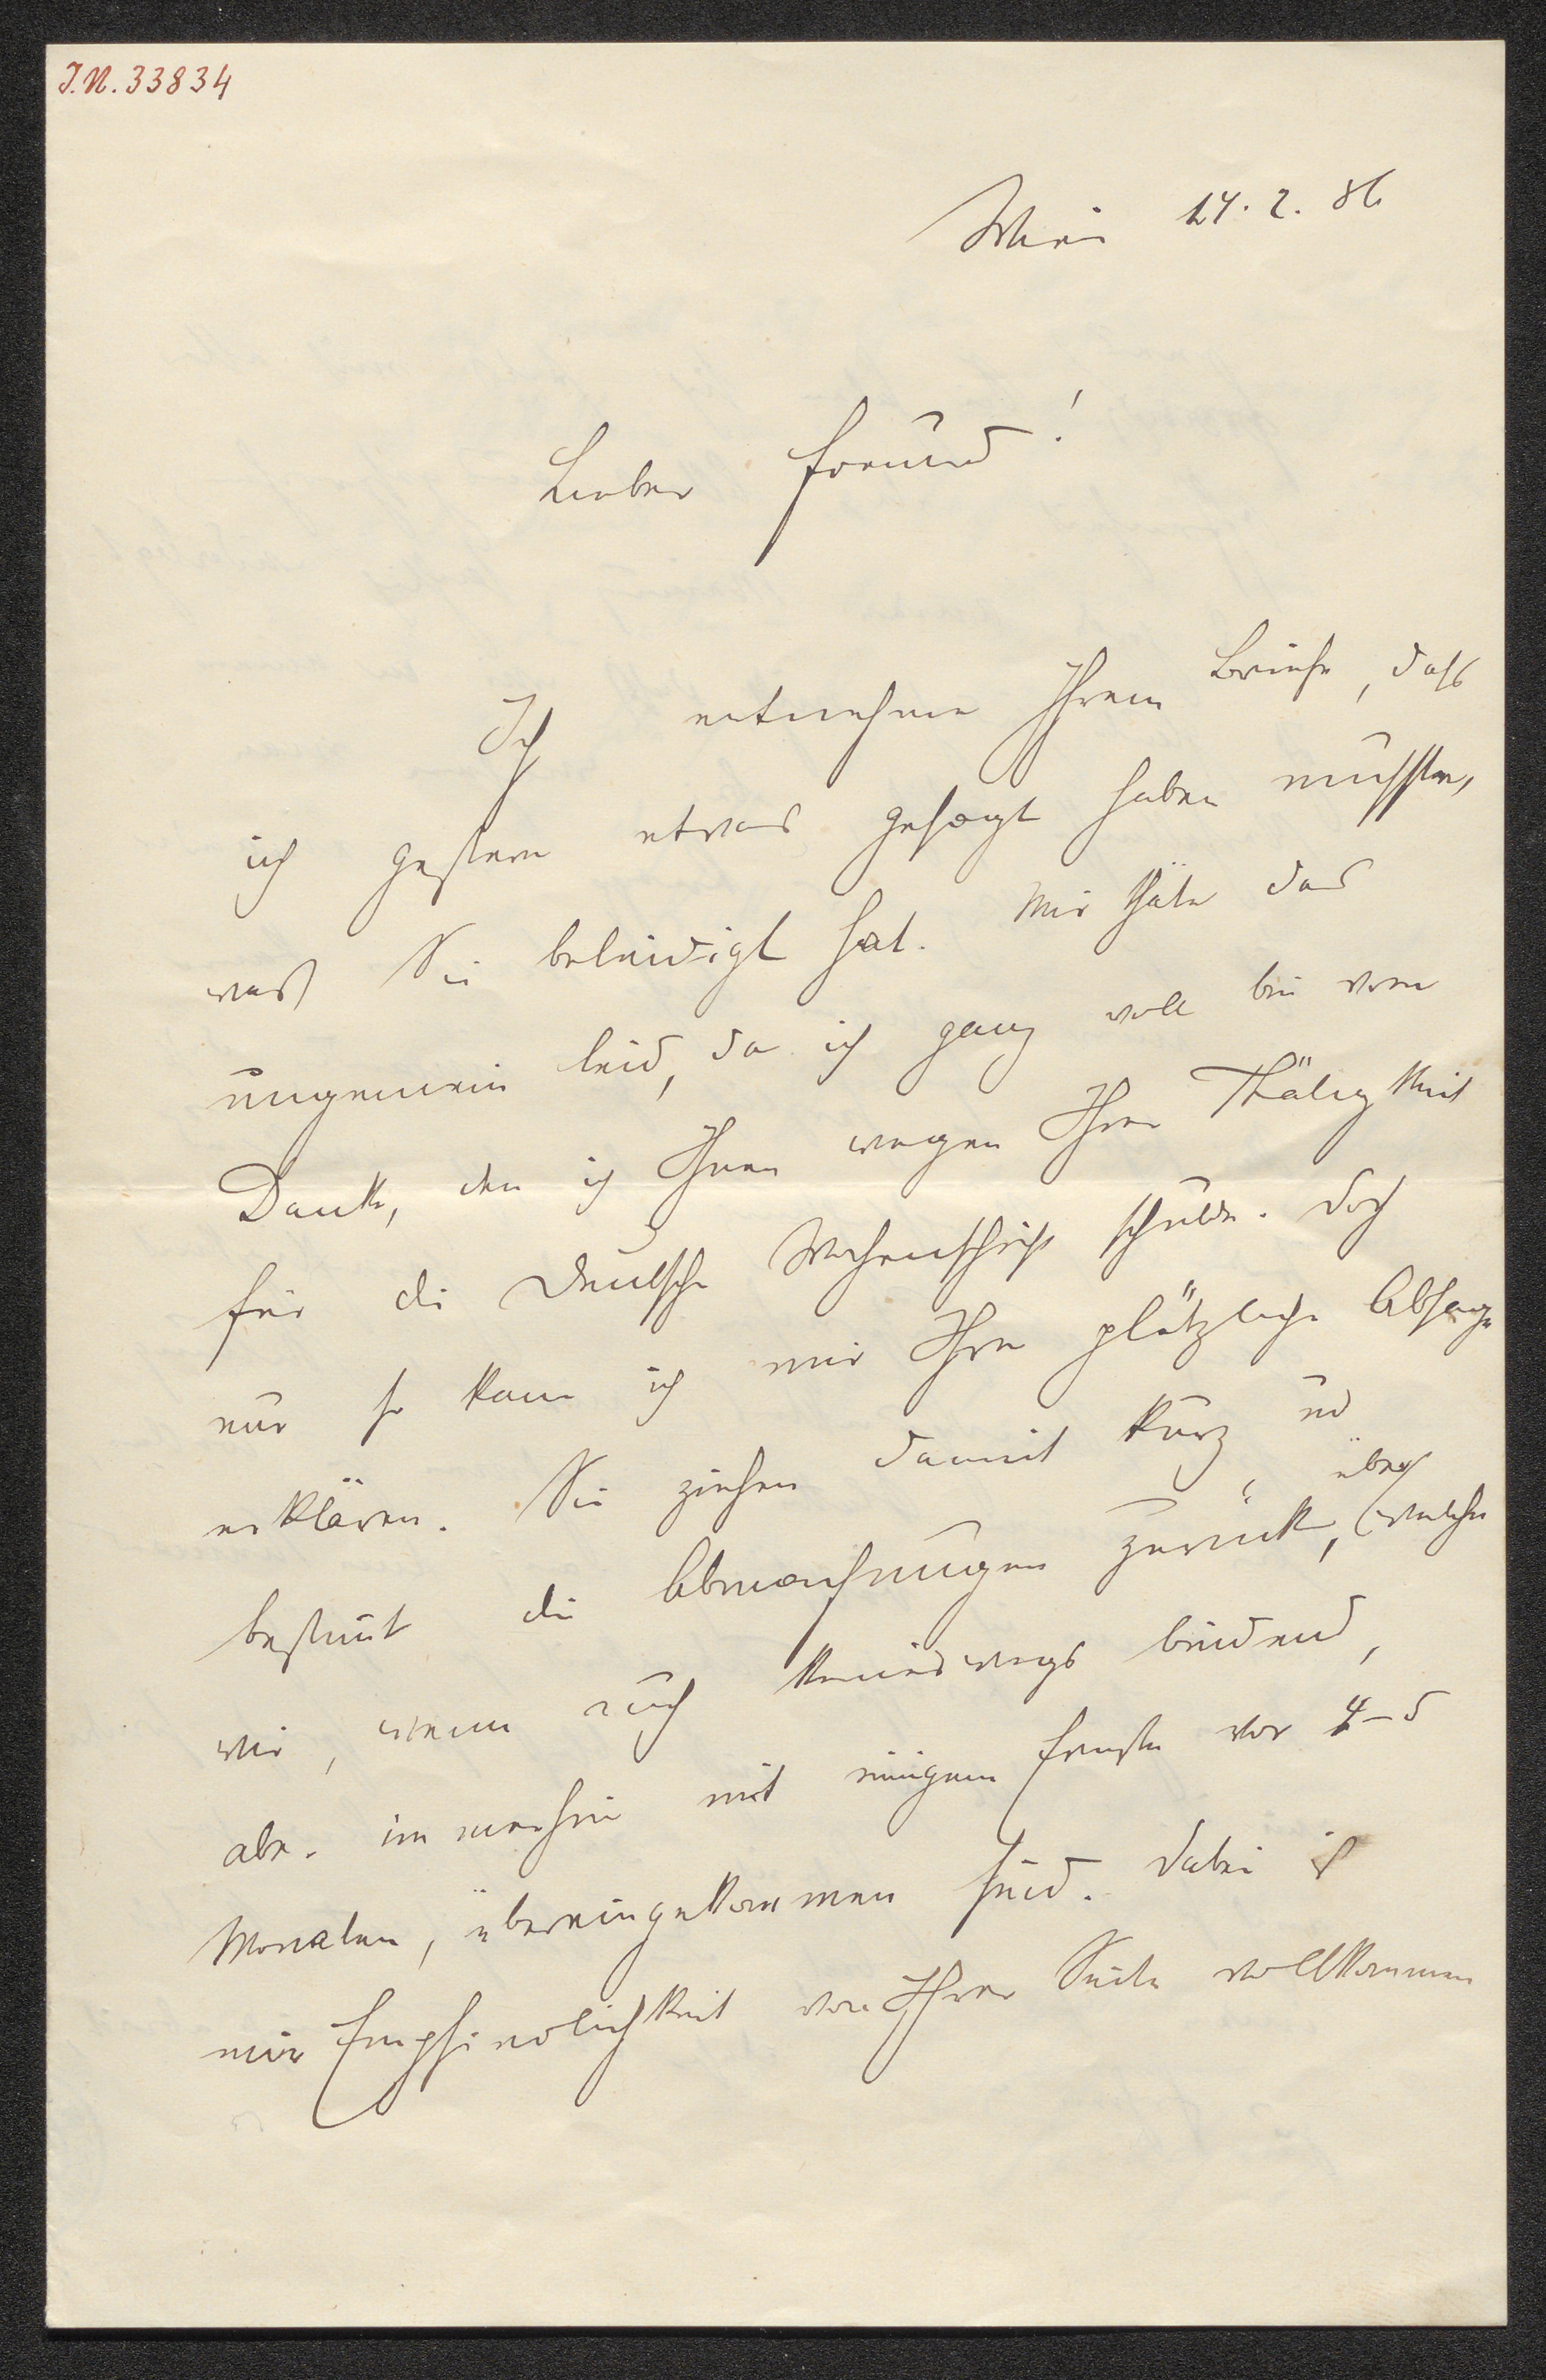 J.N. 33834
Wien 24. 2. 86
Lieber Freund!
Ich entnehme Ihrem Briefe, daß
ich gestern etwas gesagt haben mußte,
was Sie beleidigt hat. Mir thäte das
ungemein leid, da ich ganz voll bin vom
Danke, den ich Ihnen wegen Ihrer Thätigkeit
für die Deutsche Wochenschrift schulde. Doch
nur so kann ich mir Ihre plötzliche Absage
erklären. Sie ziehen damit kurz und
bestimt die Abmachungen zurück, über welche
wir, wenn auch keineswegs bindend,
aber immerhin mit einigem Ernste vor 4-5
Monaten, übereingekommen sind. Dabei ist
mir Empfindlichkeit von Ihrer Seite vollkommen